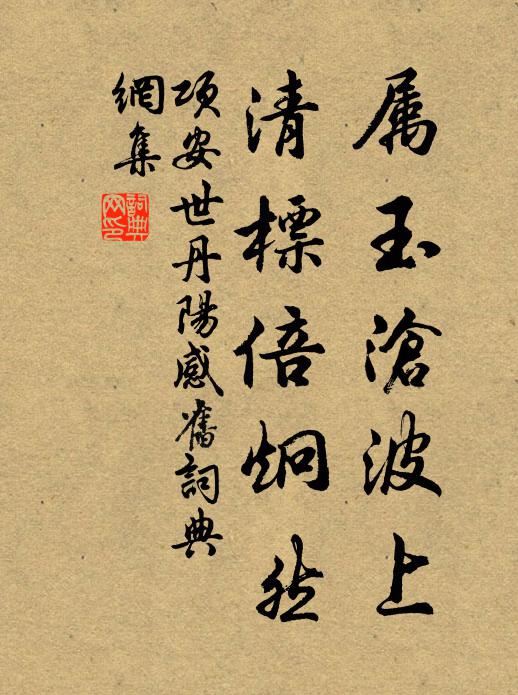 属玉滄波上
清標倍炯然
項安世丹陽感舊詞典
網集
詞典
网印